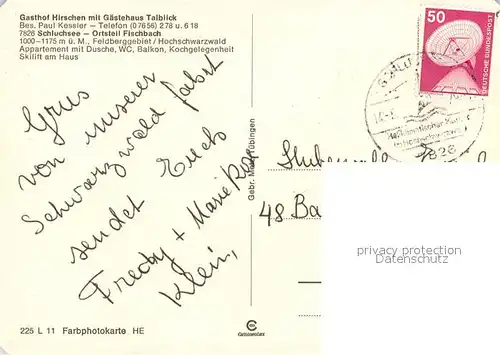 Gasthof Hirschen mit Gästehaus Talblick
Bes. Paul Kessler — Telefon (07656) 278 u. 618
7826 Schluchsee — Ortsteil Fischbach
1000–1175 m ü. M., Feldberggebiet / Hochschwarzwald
Appartement mit Dusche, WC, Balkon, Kochgelegenheit
Skilift am Haus
Grus
von unserer
Schwarzwald fahrt
sendet Euch
Fredy + Marie
Klein,
225 L 11 Farbphotokarte HE
Gebr. Metz Tübingen
50
DEUTSCHE BUNDESPOST
7826
48 
privacy protection
Datenschutz